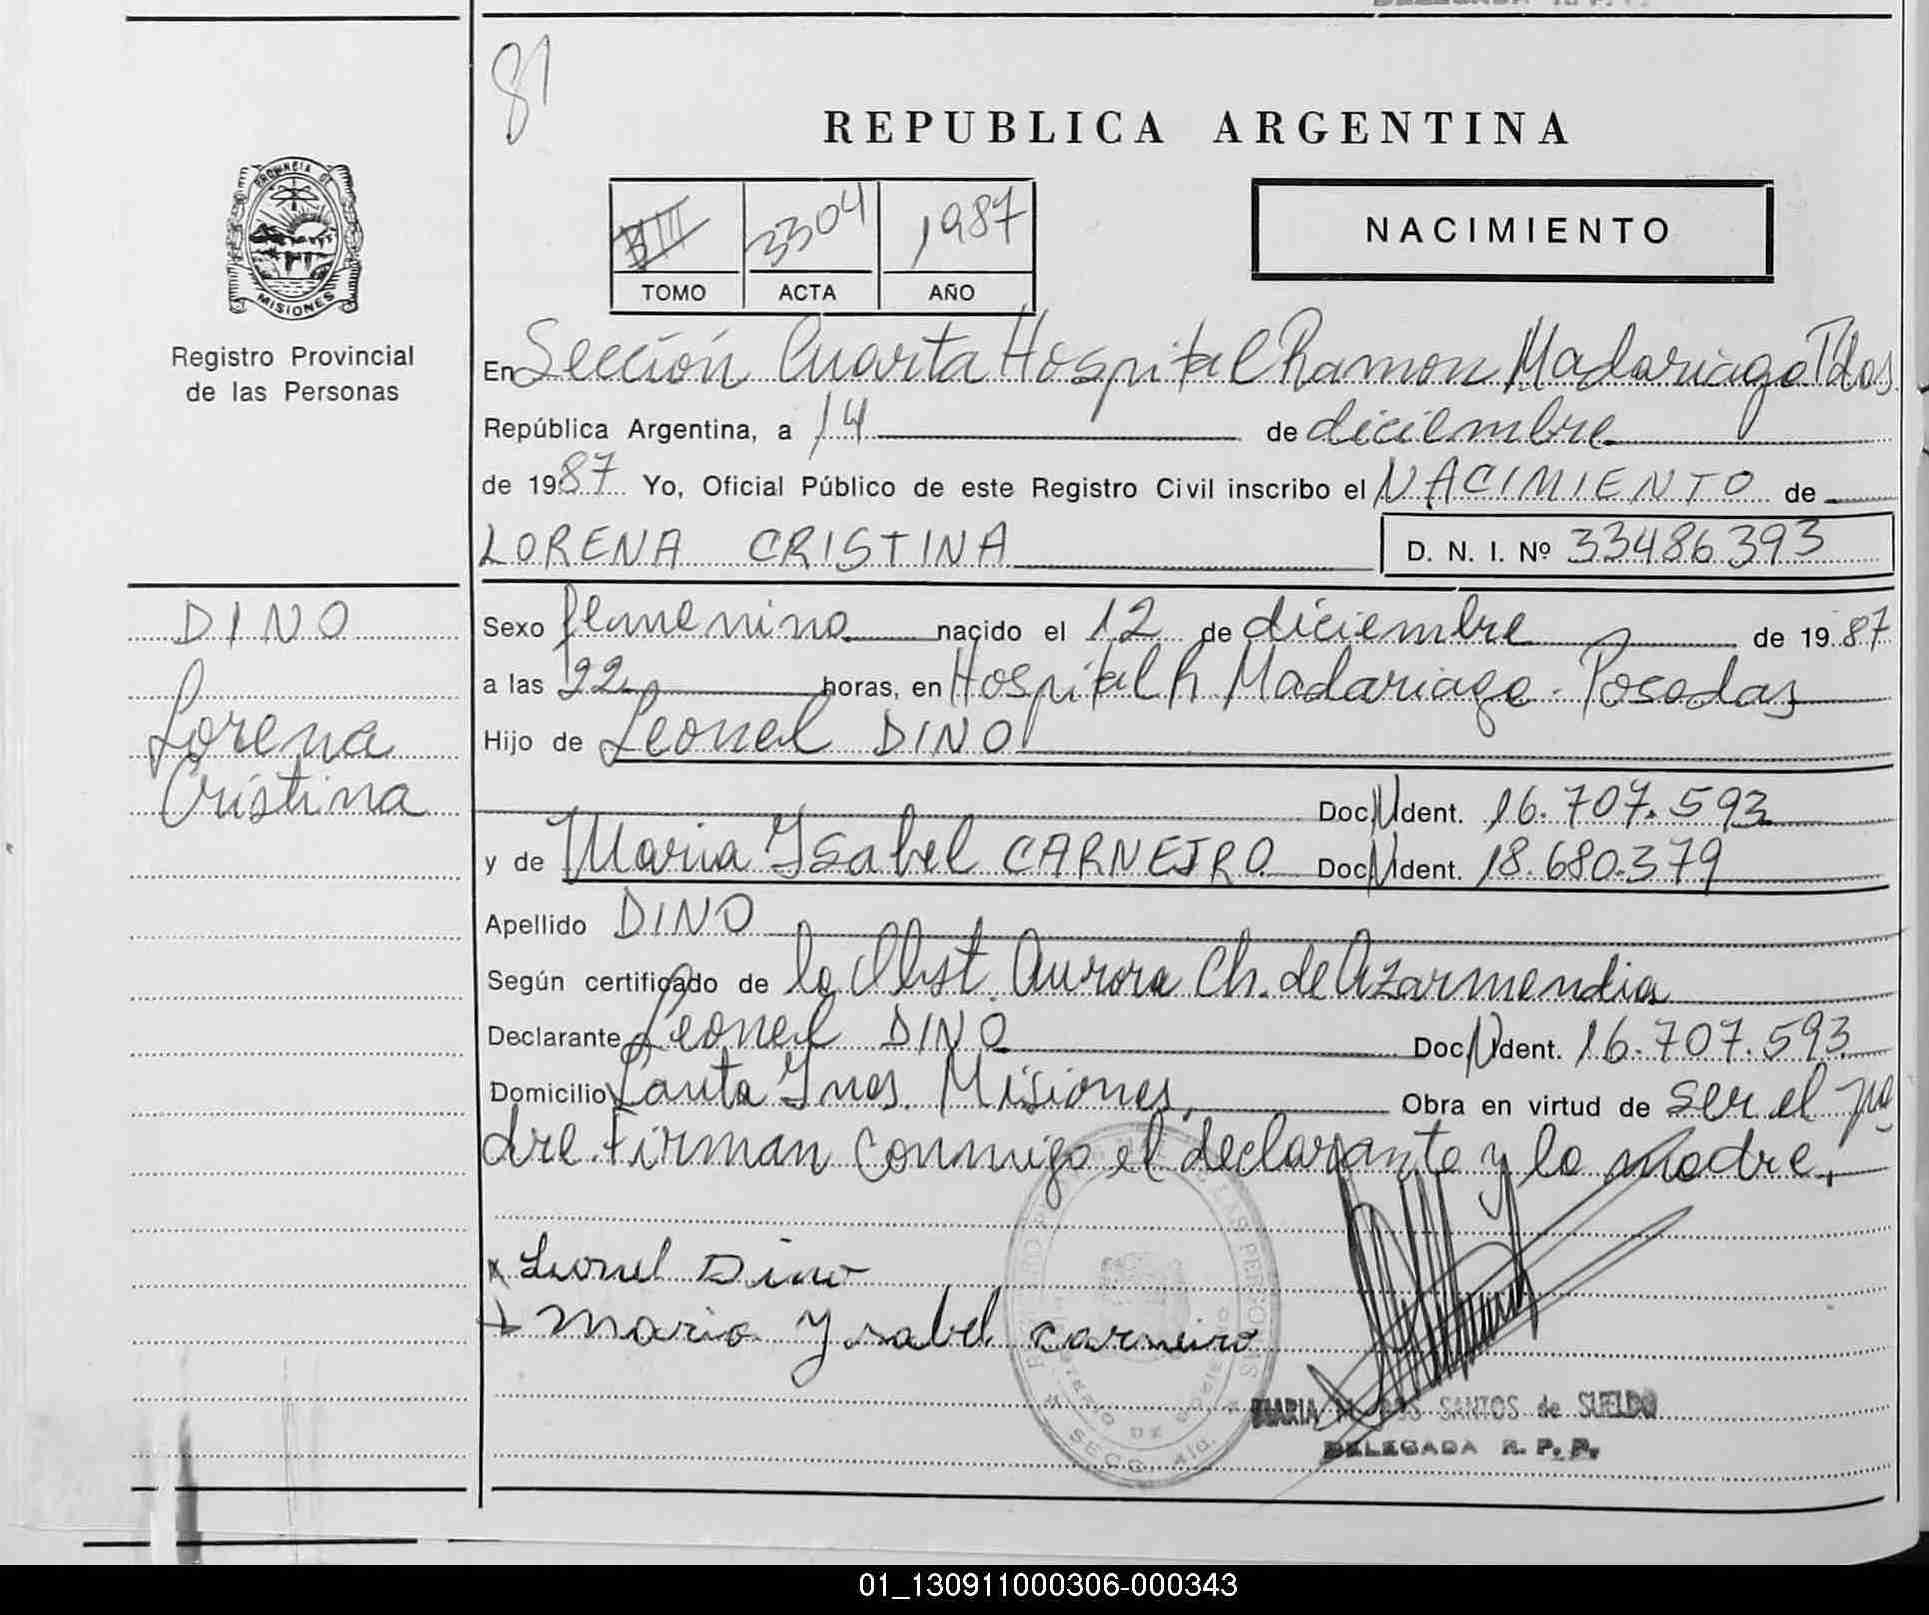 81
REPUBLICA ARGENTINA
PROVINCIA DE
MISIONES
Registro Provincial
de las Personas
3304 1987
TOMO ACTA AÑO
NACIMIENTO
En Sección Cuarta Hospital Ramon Madariaga Pdas
República Argentina, a 14 de diciembre
de 1987 Yo, Oficial Público de este Registro Civil inscribo el NACIMIENTO de
LORENA CRISTINA D. N. I. Nº 33486393
DINO
Lorena
Cristina
Sexo femenino nacido el 12 de diciembre de 1987
a las 22 horas, en Hospital R Madariaga - Posadas
Hijo de Leonel DINO
Doc N Ident. 16.707.593
y de Maria Ysabel CARNEIRO Doc N Ident. 18.680.379
Apellido DINO
Según certificado de la Obst. Aurora Ch. de Azarmendia
Declarante Leonel DINO Doc N Ident. 16.707.593
Domicilio Santa Ynes. Misiones, Obra en virtud de ser el pa
dre. Firman conmigo el declarante y la madre.
x Leonel Dino
x Maria Ysabel Carneiro
MARIA DOS SANTOS de SUELDO
DELEGADA R. P. P.
SECC. 4ta.
01_130911000306-000343